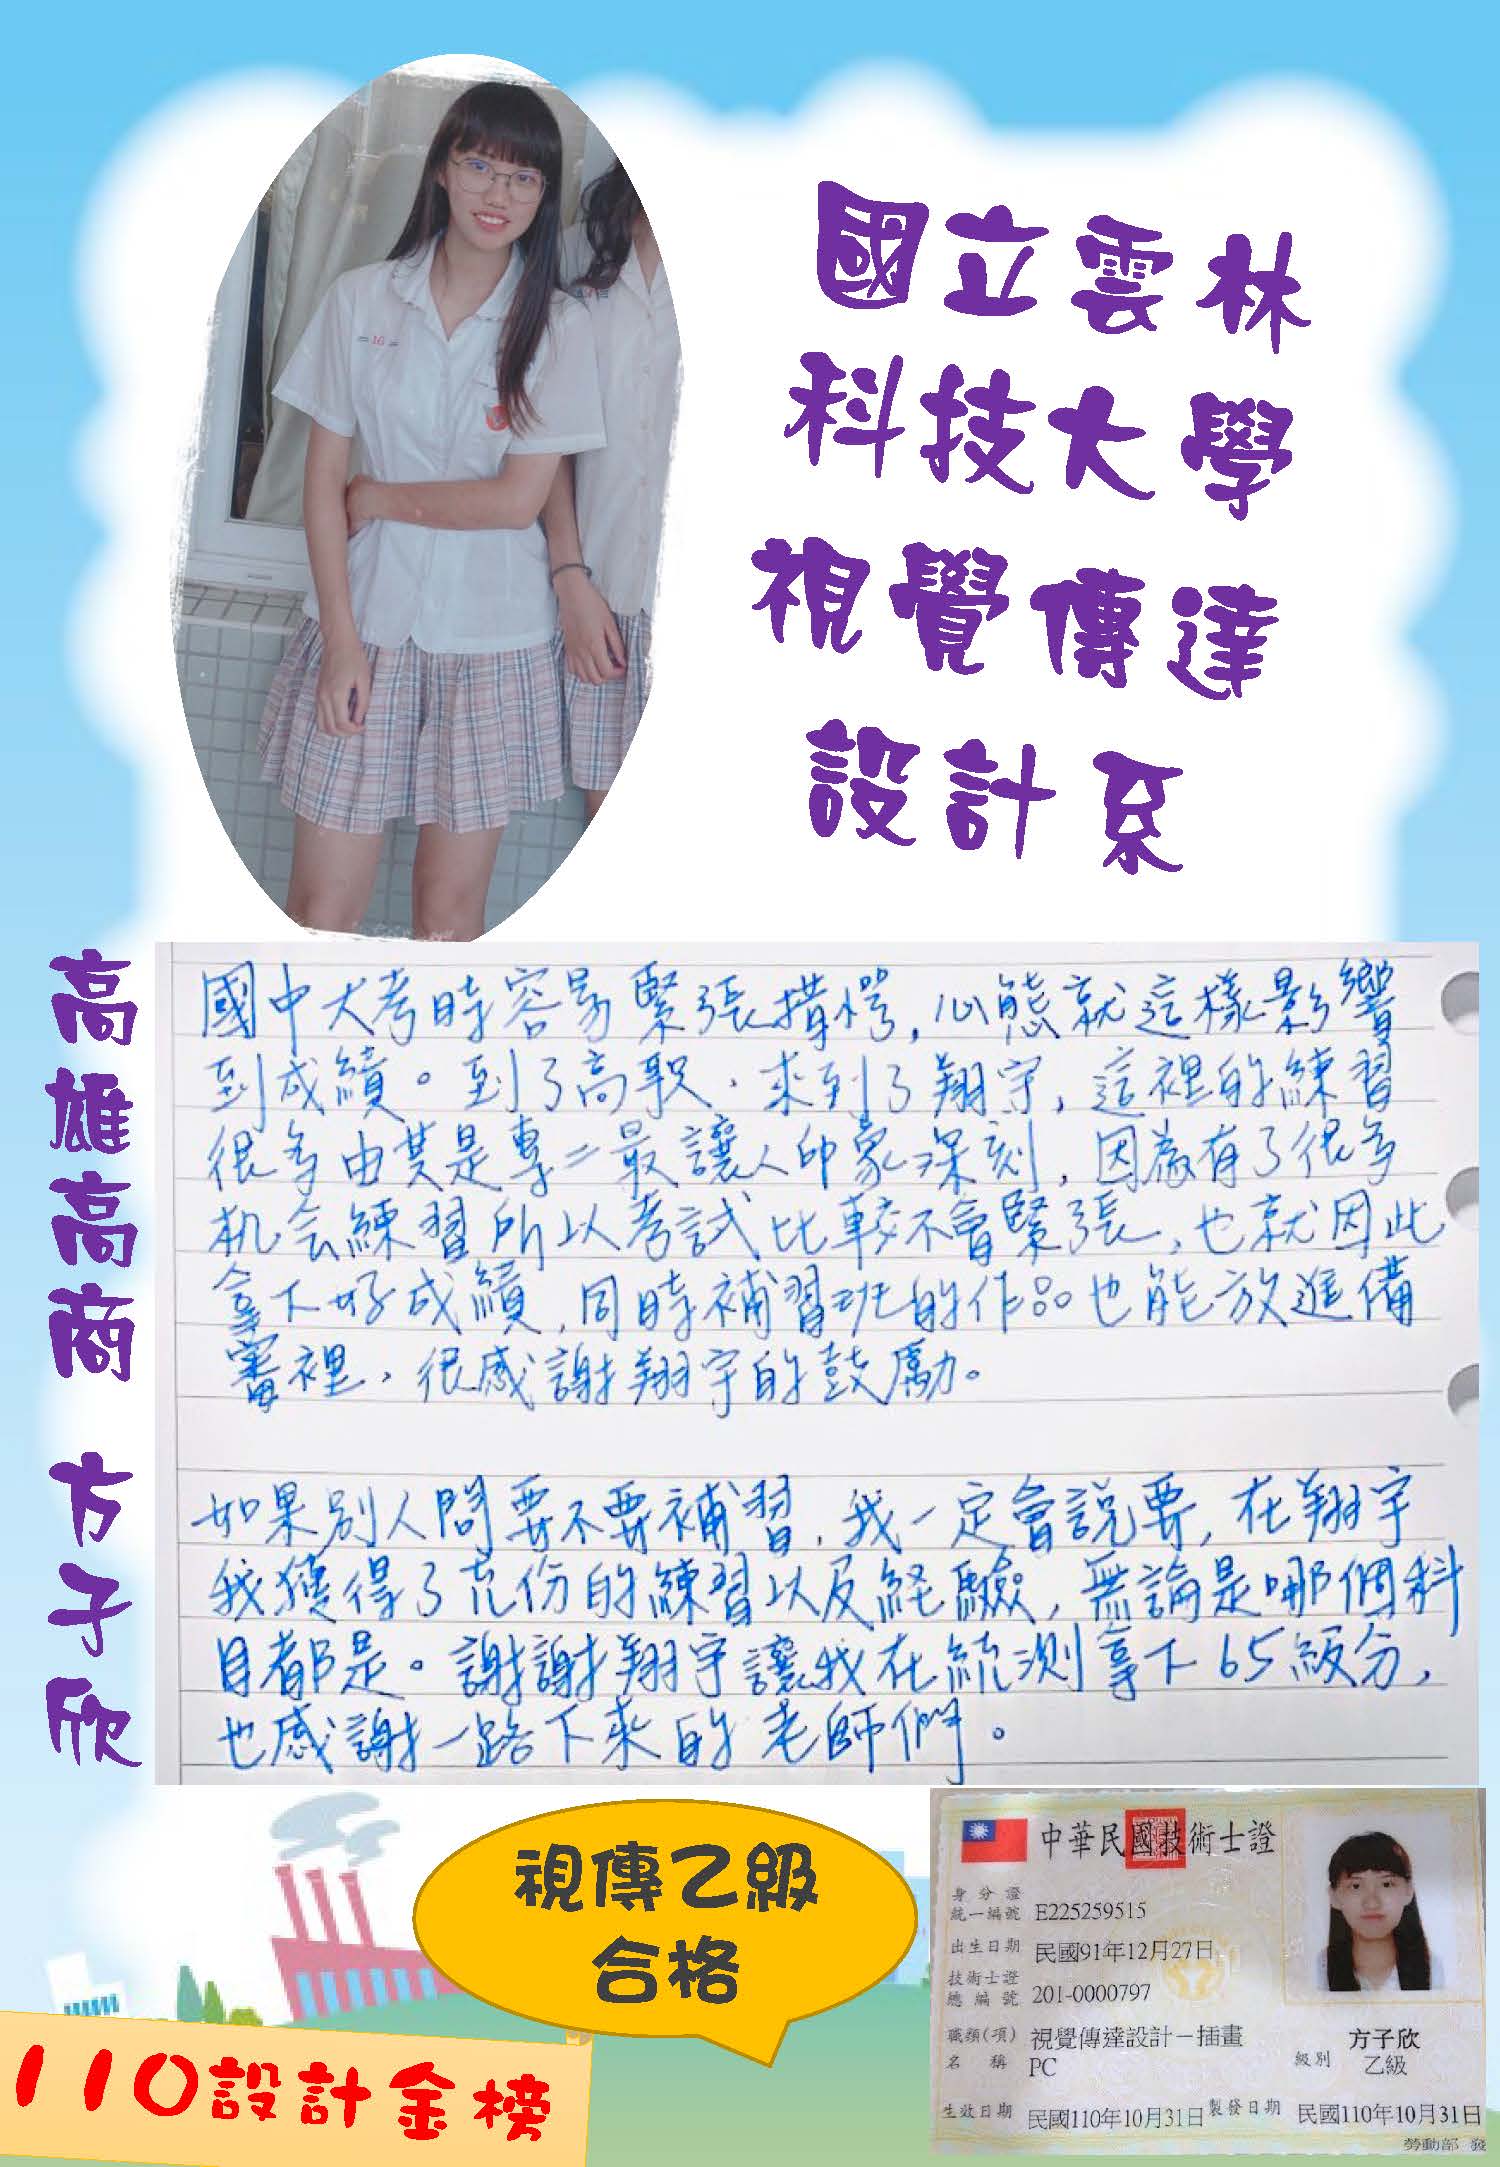 國立雲林
科技大學
視覺傳達
設計系
高雄高商 方子欣
16
國中大考時容易緊張措愕,心態就這樣影響
到成績。到了高職,來到了翔宇,這裡的練習
很多由其是專二最讓人印象深刻,因為有了很多
机会練習所以考試比較不會緊張,也就因此
拿下好成績,同時補習班的作品也能放進備
審裡,很感謝翔宇的鼓勵。
如果別人問要不要補習,我一定會説要,在翔宇
我獲得了充份的練習以及経驗,無論是哪個科
目都是。謝謝翔宇讓我在統測拿下65級分,
也感謝一路下來的老師們。
視傳乙級
合格
110設計金榜
中華民國技術士證
身分證
統一編號 E225259515
出生日期 民國91年12月27日
技術士證
總編號 201-0000797
職類(項) 視覺傳達設計－插畫
名稱 PC
方子欣
級別 乙級
生效日期 民國110年10月31日 製發日期 民國110年10月31日
勞動部 發